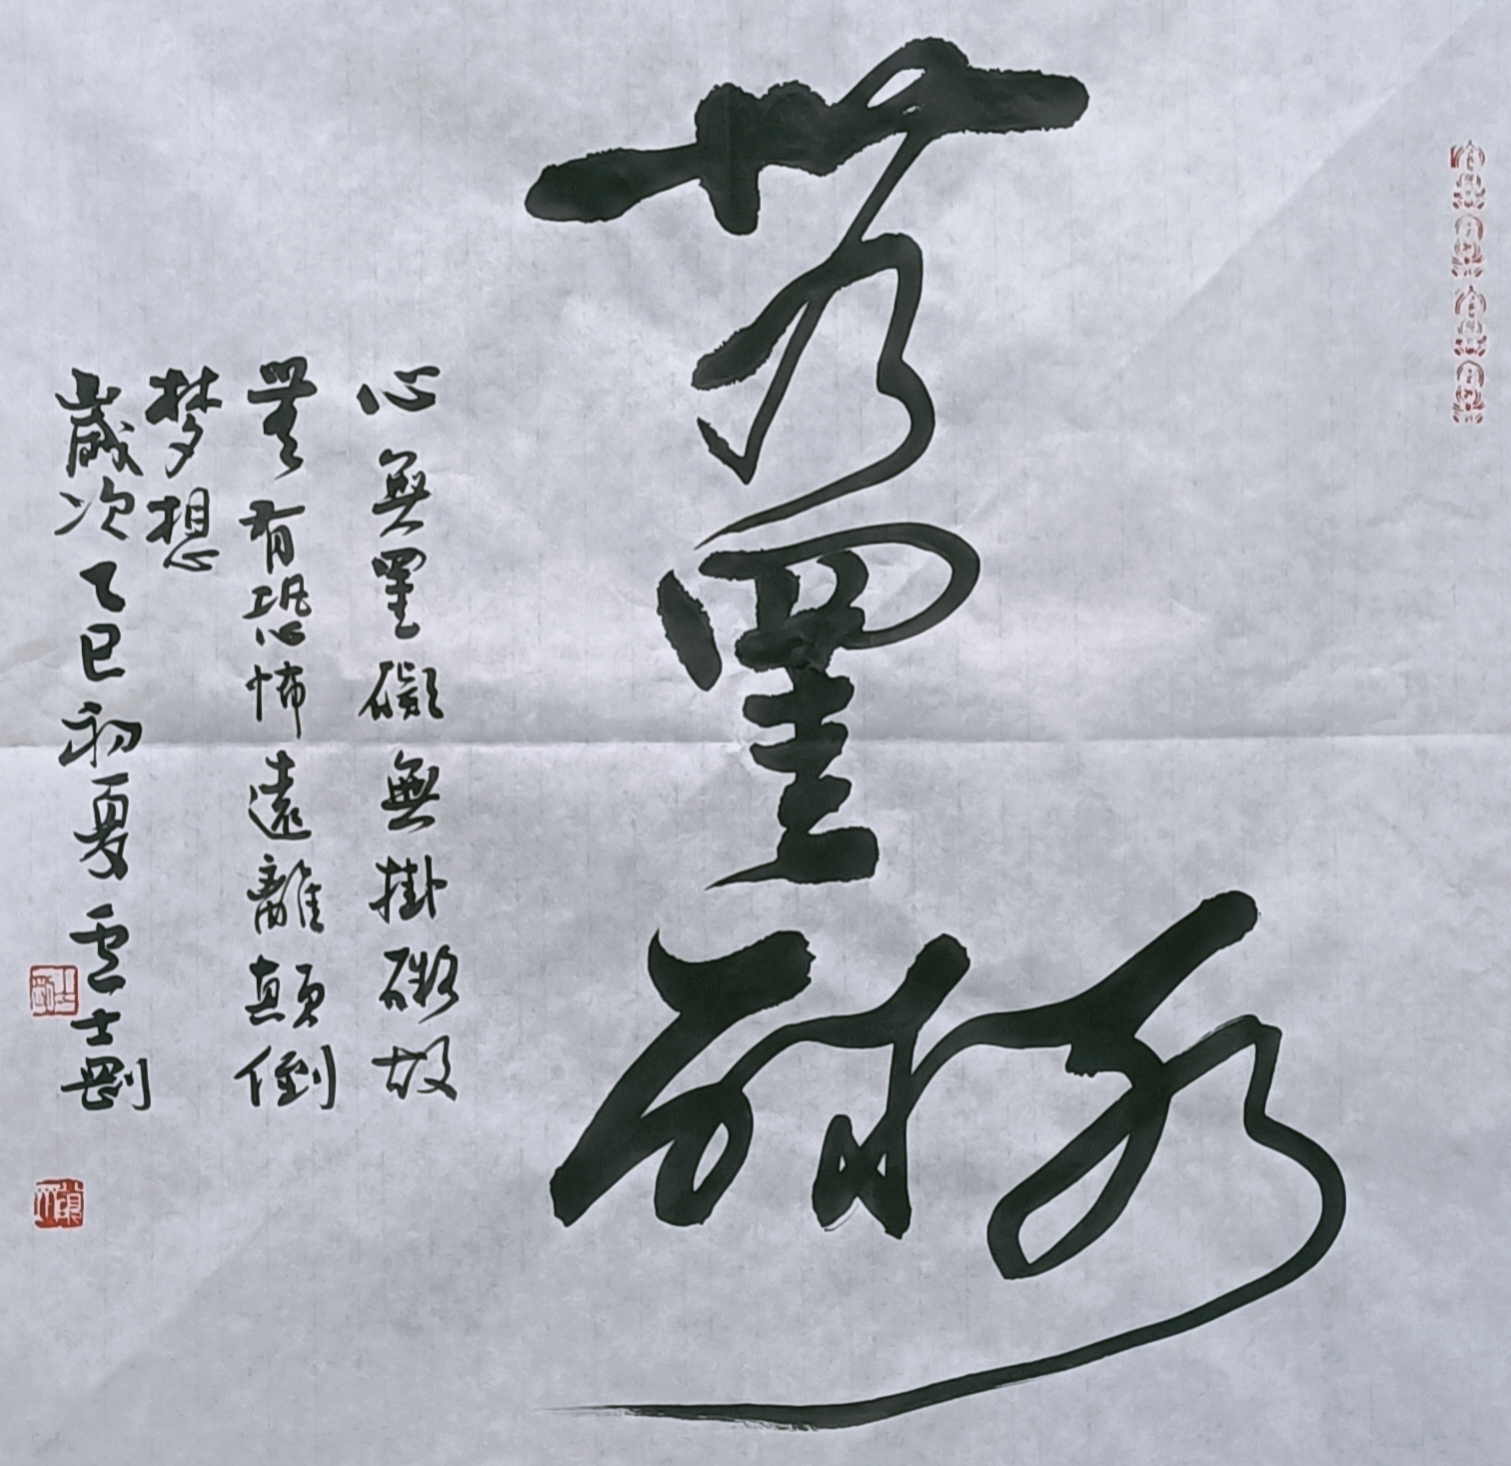 無罣礙
心無罣礙無掛礙故
無有恐怖遠離顛倒
梦想
歲次乙巳初夏雲士剛